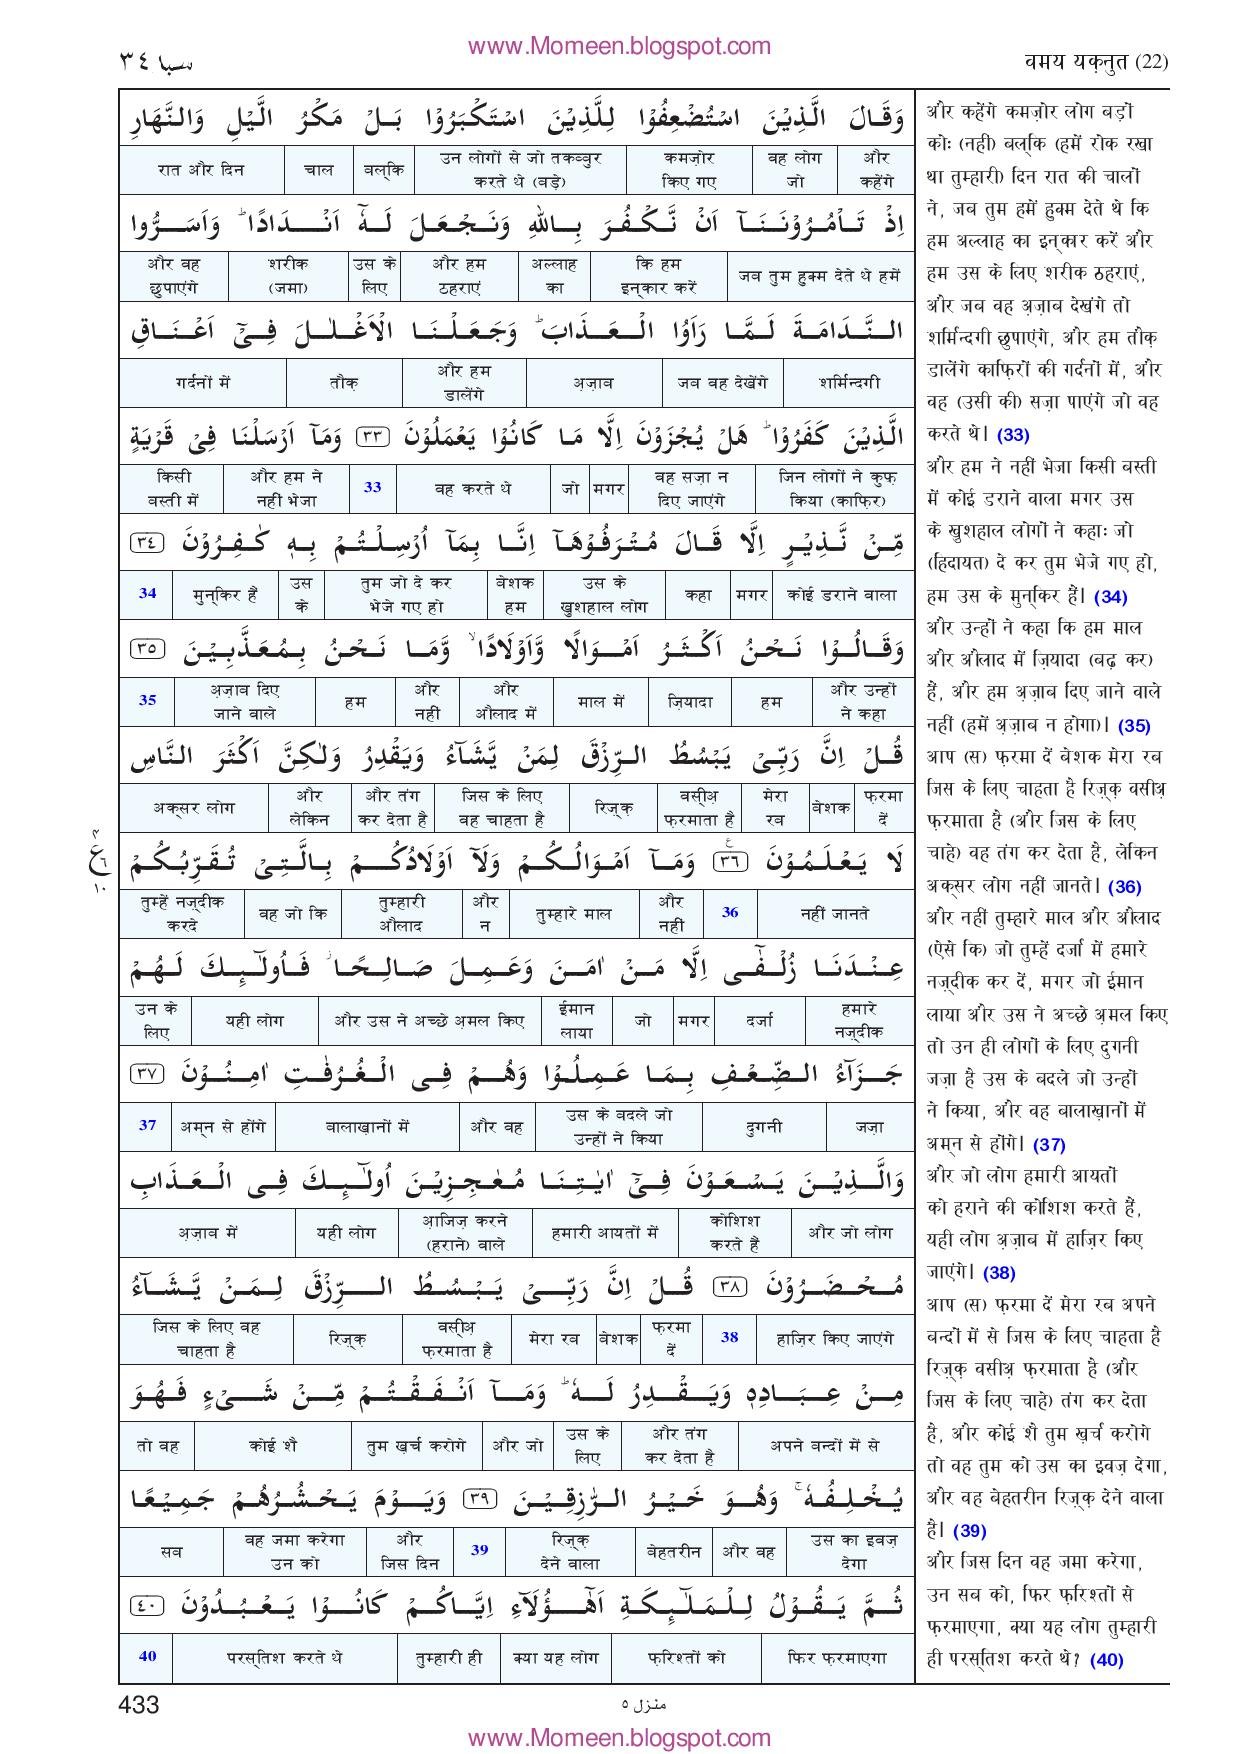 www.Momeen.blogspot.com
سبا ٣٤
वमय यक़्नुत (22)
وَقَالَ الَّذِيْنَ اسْتُضْعِفُوْا لِلَّذِيْنَ اسْتَكْبَرُوْا بَلْ مَكْرُ الَّيْلِ وَالنَّهَارِ
और कहेंगे | वह लोग जो | कमज़ोर किए गए | उन लोगों से जो तकब्बुर करते थे (बड़े) | बल्कि | चाल | रात और दिन
اِذْ تَأْمُرُوْنَنَآ اَنْ نَّكْفُرَ بِاللّٰهِ وَنَجْعَلَ لَهٗٓ اَنْدَادًا ؕ وَاَسَرُّوا
जब तुम हुक्म देते थे हमें | कि हम इन्कार करें | अल्लाह का | और हम ठहराएं | उस के लिए | शरीक (जमा) | और वह छुपाएंगे
النَّدَامَةَ لَمَّا رَاَوُا الْعَذَابَ ؕ وَجَعَلْنَا الْاَغْلٰلَ فِيْٓ اَعْنَاقِ
शर्मिन्दगी | जब वह देखेंगे | अ़ज़ाब | और हम डालेंगे | तौक़ | गर्दनों में
الَّذِيْنَ كَفَرُوْا ؕ هَلْ يُجْزَوْنَ اِلَّا مَا كَانُوْا يَعْمَلُوْنَ ٣٣ وَمَآ اَرْسَلْنَا فِيْ قَرْيَةٍ
जिन लोगों ने कुफ़्र किया (काफ़िर) | वह सज़ा न दिए जाएंगे | मगर | जो | वह करते थे | 33 | और हम ने नहीं भेजा | किसी बस्ती में
مِّنْ نَّذِيْرٍ اِلَّا قَالَ مُتْرَفُوْهَآ اِنَّا بِمَآ اُرْسِلْتُمْ بِهٖ كٰفِرُوْنَ ٣٤
कोई डराने वाला | मगर | कहा | उस के खुशहाल लोग | बेशक हम | तुम जो दे कर भेजे गए हो | उस के | मुन्किर हैं | 34
وَقَالُوْا نَحْنُ اَكْثَرُ اَمْوَالًا وَّاَوْلَادًا ۙ وَّمَا نَحْنُ بِمُعَذَّبِيْنَ ٣٥
और उन्हों ने कहा | हम | ज़ियादा | माल में | और औलाद में | और नहीं | हम | अ़ज़ाब दिए जाने वाले | 35
قُلْ اِنَّ رَبِّيْ يَبْسُطُ الرِّزْقَ لِمَنْ يَّشَآءُ وَيَقْدِرُ وَلٰكِنَّ اَكْثَرَ النَّاسِ
फ़रमा दें | बेशक | मेरा रब | वसीअ़ फ़रमाता है | रिज़्क़ | जिस के लिए वह चाहता है | और तंग कर देता है | और लेकिन | अक्सर लोग
٤ ع ٦ ١٠
لَا يَعْلَمُوْنَ ٣٦ وَمَآ اَمْوَالُكُمْ وَلَآ اَوْلَادُكُمْ بِالَّتِيْ تُقَرِّبُكُمْ
नहीं जानते | 36 | और नहीं | तुम्हारे माल | और न | तुम्हारी औलाद | वह जो कि | तुम्हें नज़्दीक करदे
عِنْدَنَا زُلْفٰٓى اِلَّا مَنْ اٰمَنَ وَعَمِلَ صَالِحًا ۫ فَاُولٰٓئِكَ لَهُمْ
हमारे नज़्दीक | दर्जा | मगर | जो | ईमान लाया | और उस ने अच्छे अ़मल किए | यही लोग | उन के लिए
جَزَآءُ الضِّعْفِ بِمَا عَمِلُوْا وَهُمْ فِى الْغُرُفٰتِ اٰمِنُوْنَ ٣٧
जज़ा | दुगनी | उस के बदले जो उन्हों ने किया | और वह | बालाख़ानों में | अम्न से होंगे | 37
وَالَّذِيْنَ يَسْعَوْنَ فِيْٓ اٰيٰتِنَا مُعٰجِزِيْنَ اُولٰٓئِكَ فِى الْعَذَابِ
और जो लोग | कोशिश करते हैं | हमारी आयतों में | आ़जिज़ करने (हराने) वाले | यही लोग | अ़ज़ाब में
مُحْضَرُوْنَ ٣٨ قُلْ اِنَّ رَبِّيْ يَبْسُطُ الرِّزْقَ لِمَنْ يَّشَآءُ
हाज़िर किए जाएंगे | 38 | फ़रमा दें | बेशक | मेरा रब | वसीअ़ फ़रमाता है | रिज़्क़ | जिस के लिए वह चाहता है
مِنْ عِبَادِهٖ وَيَقْدِرُ لَهٗ ؕ وَمَآ اَنْفَقْتُمْ مِّنْ شَيْءٍ فَهُوَ
अपने बन्दों में से | और तंग कर देता है | उस के लिए | और जो | तुम ख़र्च करोगे | कोई शै | तो वह
يُخْلِفُهٗ ۚ وَهُوَ خَيْرُ الرّٰزِقِيْنَ ٣٩ وَيَوْمَ يَحْشُرُهُمْ جَمِيْعًا
उस का इवज़ देगा | और वह | बेहतरीन | रिज़्क़ देने वाला | 39 | और जिस दिन | वह जमा करेगा उन को | सब
ثُمَّ يَقُوْلُ لِلْمَلٰٓئِكَةِ اَهٰٓؤُلَآءِ اِيَّاكُمْ كَانُوْا يَعْبُدُوْنَ ٤٠
फिर फ़रमाएगा | फ़रिश्तों को | क्या यह लोग | तुम्हारी ही | परस्तिश करते थे | 40
और कहेंगे कमज़ोर लोग बड़ों
कोः (नहीं) बल्कि (हमें रोक रखा
था तुम्हारी) दिन रात की चालों
ने, जब तुम हमें हुक्म देते थे कि
हम अल्लाह का इन्कार करें और
हम उस के लिए शरीक ठहराएं,
और जब वह अ़ज़ाब देखेंगे तो
शर्मिन्दगी छुपाएंगे, और हम तौक़
डालेंगे काफ़िरों की गर्दनों में, और
वह (उसी की) सज़ा पाएंगे जो वह
करते थे। (33)
और हम ने नहीं भेजा किसी बस्ती
में कोई डराने वाला मगर उस
के खुशहाल लोगों ने कहाः जो
(हिदायत) दे कर तुम भेजे गए हो,
हम उस के मुन्किर हैं। (34)
और उन्हों ने कहा कि हम माल
और औलाद में ज़ियादा (बढ़ कर)
हैं, और हम अ़ज़ाब दिए जाने वाले
नहीं (हमें अ़ज़ाब न होगा)। (35)
आप (स) फ़रमा दें बेशक मेरा रब
जिस के लिए चाहता है रिज़्क़ वसीअ़
फ़रमाता है (और जिस के लिए
चाहे) वह तंग कर देता है, लेकिन
अक्सर लोग नहीं जानते। (36)
और नहीं तुम्हारे माल और औलाद
(ऐसे कि) जो तुम्हें दर्जा में हमारे
नज़्दीक कर दें, मगर जो ईमान
लाया और उस ने अच्छे अ़मल किए
तो उन ही लोगों के लिए दुगनी
जज़ा है उस के बदले जो उन्हों
ने किया, और वह बालाख़ानों में
अम्न से होंगे। (37)
और जो लोग हमारी आयतों
को हराने की कोशिश करते हैं,
यही लोग अ़ज़ाब में हाज़िर किए
जाएंगे। (38)
आप (स) फ़रमा दें मेरा रब अपने
बन्दों में से जिस के लिए चाहता है
रिज़्क़ वसीअ़ फ़रमाता है (और
जिस के लिए चाहे) तंग कर देता
है, और कोई शै तुम ख़र्च करोगे
तो वह तुम को उस का इवज़ देगा,
और वह बेहतरीन रिज़्क़ देने वाला
है। (39)
और जिस दिन वह जमा करेगा,
उन सब को, फिर फ़रिश्तों से
फ़रमाएगा, क्या यह लोग तुम्हारी
ही परस्तिश करते थे? (40)
433
منزل ٥
www.Momeen.blogspot.com